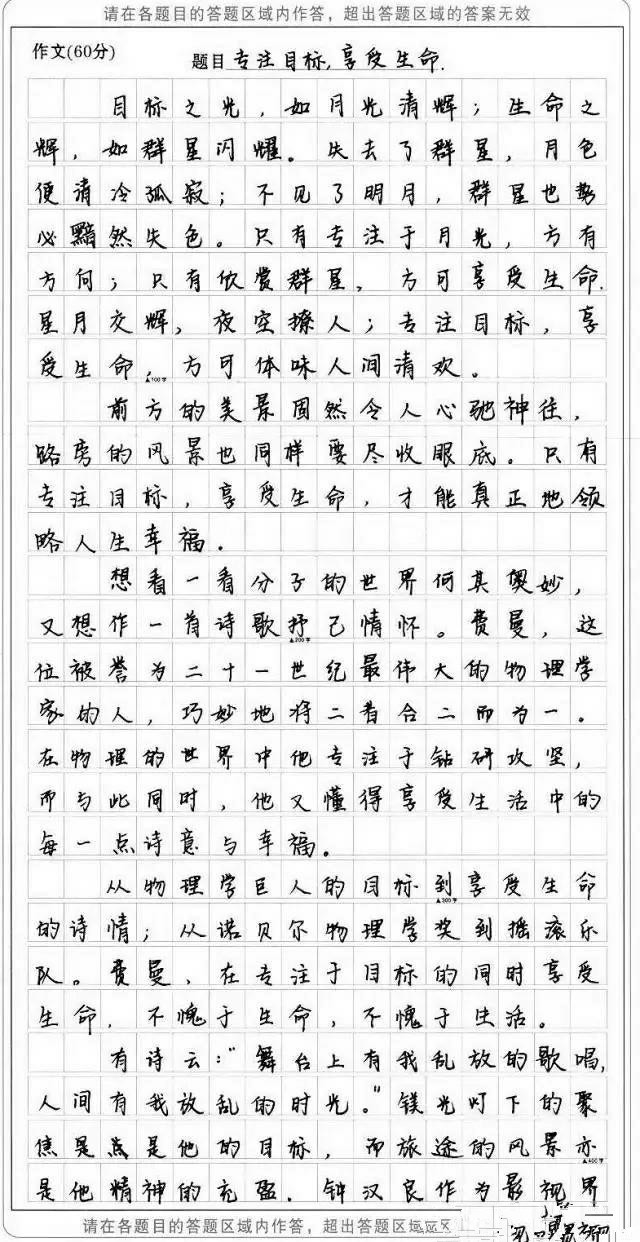 请在各题目的答题区域内作答，超出答题区域的答案无效
作文(60分)
题目 专注目标,享受生命.
目标之光，如月光清辉；生命之
辉，如群星闪耀。失去了群星，月色
便清冷孤寂；不见了明月，群星也势
必黯然失色。只有专注于月光，方有
方向；只有欣赏群星，方可享受生命.
星月交辉，夜空撩人；专注目标，享
受生命，方可体味人间清欢。
▲100字
前方的美景固然令人心驰神往，
路旁的风景也同样要尽收眼底。只有
专注目标，享受生命，才能真正地领
略人生幸福。
想看一看分子的世界何其奥妙，
又想作一首诗歌抒己情怀。费曼，这
▲200字
位被誉为二十一世纪最伟大的物理学
家的人，巧妙地将二者合二而为一。
在物理的世界中他专注于钻研攻坚，
而与此同时，他又懂得享受生活中的
每一点诗意与幸福。
从物理学巨人的目标到享受生命
▲300字
的诗情；从诺贝尔物理学奖到摇滚乐
队。费曼，在专注于目标的同时享受
生命，不愧于生命，不愧于生活。
有诗云：“舞台上有我乱放的歌唱,
人间有我放乱的时光。”镁光灯下的聚
焦是点是他的目标，而旅途的风景亦
▲400字
是他精神的充盈．钟汉良作为影视界
请在各题目的答题区域内作答，超出答题区域